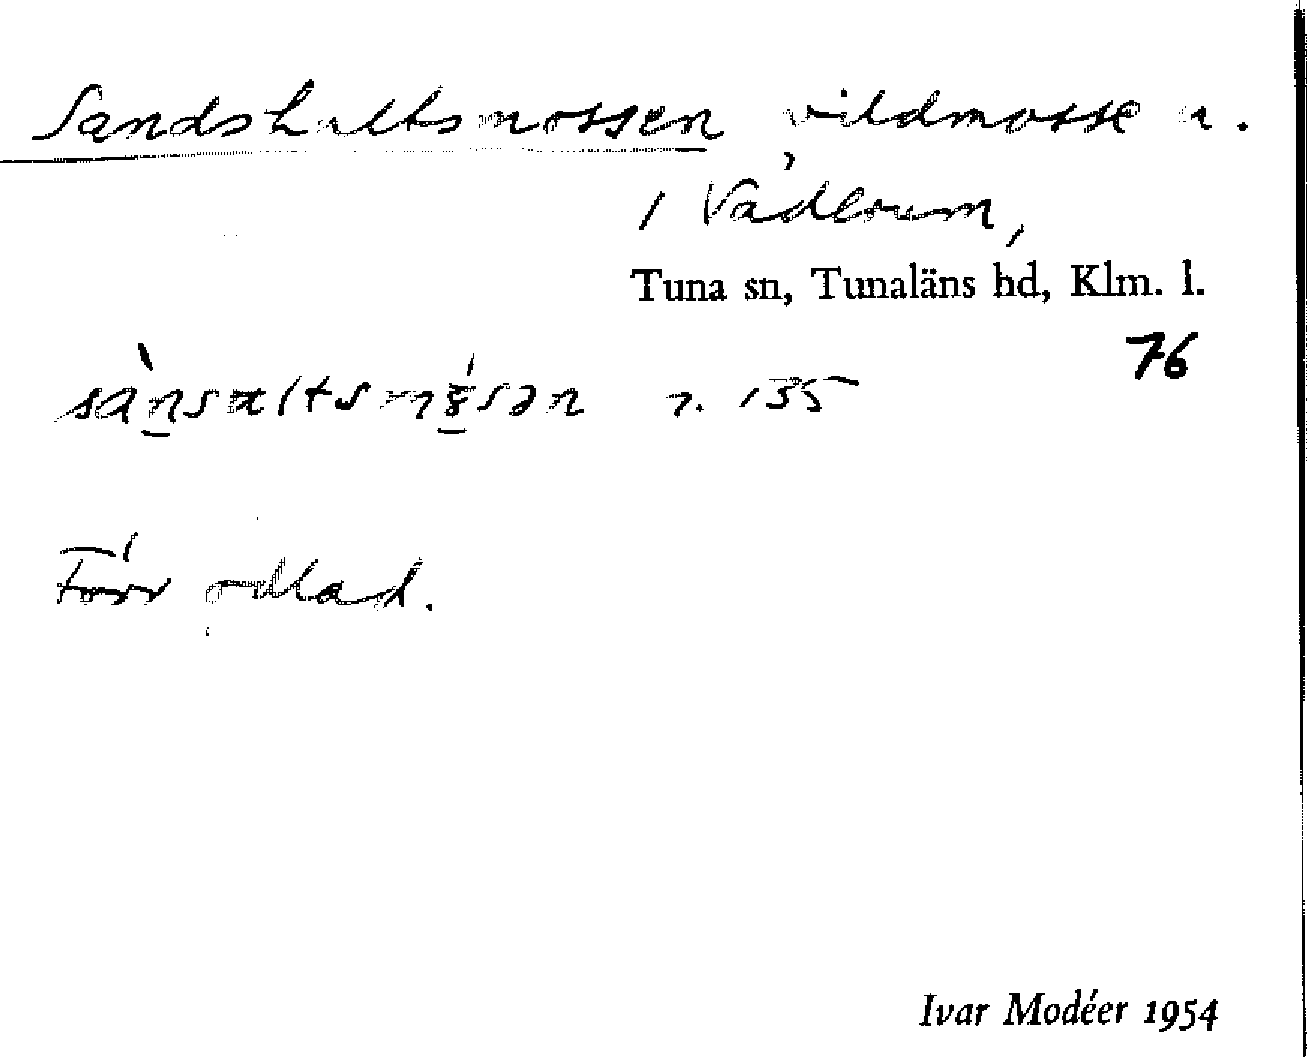 Sandshultsmossen vildmosse u.
i Väderum,
Tuna sn, Tunaläns hd, Klm. l.
76
r. 135
Förr odlad.
Ivar Modéer 1954